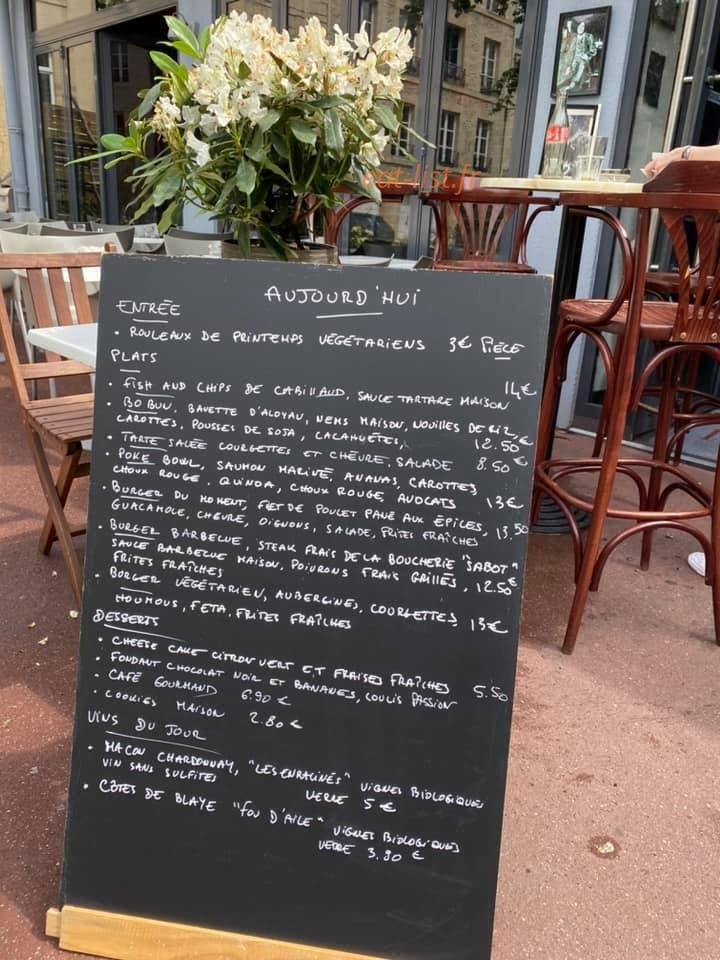 eat-list.fr
AUJOURD'HUI
ENTRÉE
• ROULEAUX DE PRINTEMPS VÉGÉTARIENS 3€ PIÈCE
PLATS
• FISH AND CHIPS DE CABILLAUD, SAUCE TARTARE MAISON 14€
• BO BUN, BAVETTE D'ALOYAU, NEMS MAISON, NOUILLES DE RIZ,
CAROTTES, POUSSES DE SOJA, CACAHUÈTES, 12.50€
• TARTE SALÉE COURGETTES ET CHÈVRE, SALADE 8.50€
• POKE BOWL, SAUMON MARINÉ, ANANAS, CAROTTES
CHOUX ROUGE, QUINOA, CHOUX ROUGE, AVOCATS 13€
• BURGER DU MOMENT, FILET DE POULET PANÉ AUX ÉPICES,
GUACAMOLE, CHÈVRE, OIGNONS, SALADE, FRITES FRAÎCHES 13.50
• BURGER BARBECUE, STEAK FRAIS DE LA BOUCHERIE "SABOT"
SAUCE BARBECUE MAISON, POIVRONS FRAIS GRILLÉS,
FRITES FRAÎCHES 12.50€
• BURGER VÉGÉTARIEN, AUBERGINES, COURGETTES,
HOUMOUS, FETA, FRITES FRAÎCHES 13€
DESSERTS
• CHEESE CAKE CITRON VERT ET FRAISES FRAÎCHES
• FONDANT CHOCOLAT NOIR ET BANANES, COULIS PASSION 5.50
• CAFÉ GOURMAND 6.90€
• COOKIES MAISON 2.80€
VINS DU JOUR
• MACON CHARDONNAY, "LES ENRACINÉS" VIGNES BIOLOGIQUES
VIN SANS SULFITES VERRE 5€
• CÔTES DE BLAYE "FOU D'AILE" VIGNES BIOLOGIQUES
VERRE 3.90€